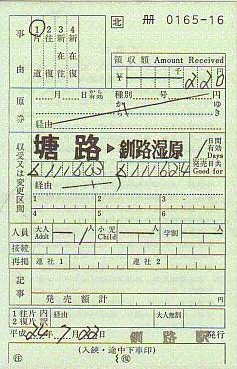 北 冊 0165-16
事由 1片道 2往復 3新在往 4新在復
領収額 Amount Received
¥ 千 円 220
原券
月 日から 有効
種別 号
か ゆき
経由
収受又は変更区間
塘路 ▶ 釧路湿原
1 日間有効 Days
発売日共 Good for
経由
1 2 3
4 5 6
人員 大人 Adult 1 小児 Child 学割
接続
再掲 連社1 連社2
記事
発売額計
1往片 内
2復片 訳
大人 無割
平成 24年7月22日 釧路駅 発行
(入鋏・途中下車印)